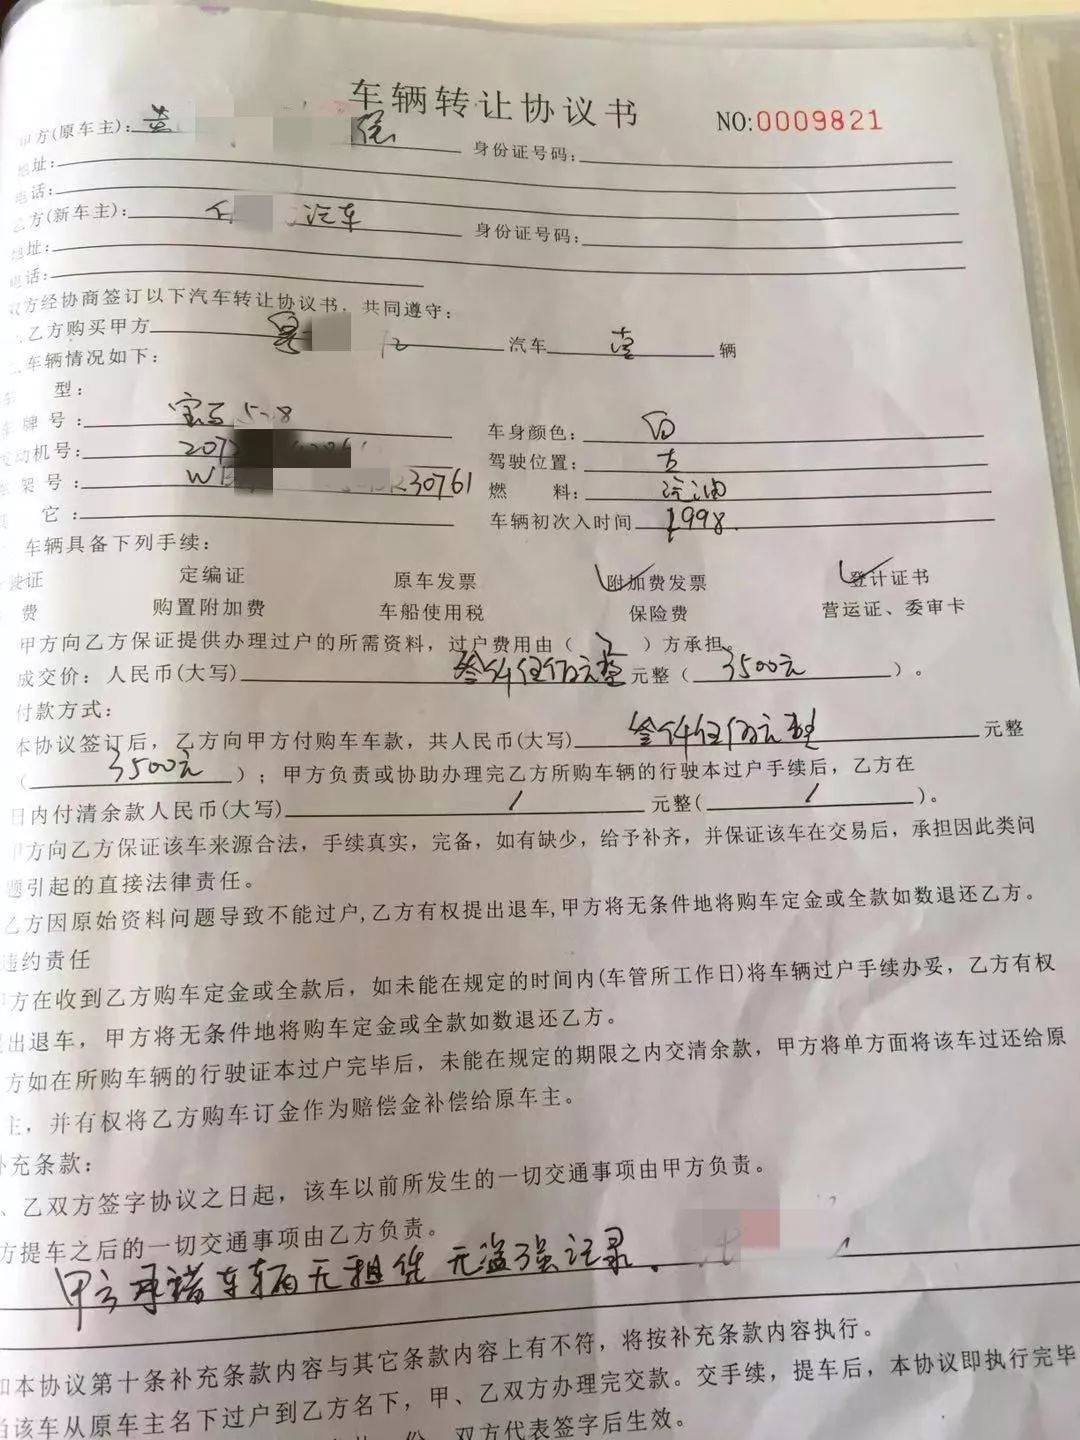 车辆转让协议书
NO:0009821
甲方(原车主): 身份证号码:
地址:
电话:
乙方(新车主): 汽车 身份证号码:
地址:
电话:
双方经协商签订以下汽车转让协议书，共同遵守:
乙方购买甲方 汽车 壹 辆
车辆情况如下:
型:
车牌号: 宝马528 车身颜色: 白
发动机号: 207 驾驶位置: 左
车架号: W 30761 燃 料: 汽油
其 它: 车辆初次入时间 1998.
车辆具备下列手续:
驶证 定编证 原车发票 附加费发票 登计证书
费 购置附加费 车船使用税 保险费 营运证、委审卡
甲方向乙方保证提供办理过户的所需资料，过户费用由（乙）方承担。
成交价: 人民币(大写) 叁仟伍佰元整 元整（3500元）。
付款方式:
本协议签订后，乙方向甲方付购车车款，共人民币(大写) 叁仟伍佰元整 元整
（3500元）; 甲方负责或协助办理完乙方所购车辆的行驶本过户手续后，乙方在
日内付清余款人民币(大写) / 元整( / )。
甲方向乙方保证该车来源合法，手续真实，完备，如有缺少，给予补齐，并保证该车在交易后，承担因此类问
题引起的直接法律责任。
乙方因原始资料问题导致不能过户,乙方有权提出退车,甲方将无条件地将购车定金或全款如数退还乙方。
违约责任
甲方在收到乙方购车定金或全款后，如未能在规定的时间内(车管所工作日)将车辆过户手续办妥，乙方有权
提出退车，甲方将无条件地将购车定金或全款如数退还乙方。
方如在所购车辆的行驶证本过户完毕后，未能在规定的期限之内交清余款，甲方将单方面将该车过还给原
主，并有权将乙方购车订金作为赔偿金补偿给原车主。
补充条款:
、乙双方签字协议之日起，该车以前所发生的一切交通事项由甲方负责。
方提车之后的一切交通事项由乙方负责。
甲方承诺车辆无抵押 无盗强记录.
如本协议第十条补充条款内容与其它条款内容上有不符，将按补充条款内容执行。
当该车从原车主名下过户到乙方名下，甲、乙双方办理完交款。交手续，提车后，本协议即执行完毕
份，双方代表签字后生效。